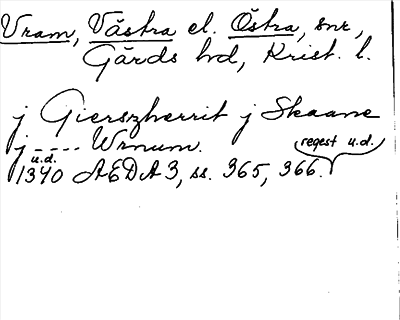 Vram, Västra el. Östra, snr,
Gärds hd, Krist. l.
j Gierszherrit j Skaane
j ---- Wrnum.
regest u.d.
u.d.
1340 AEDA 3, ss. 365, 366.